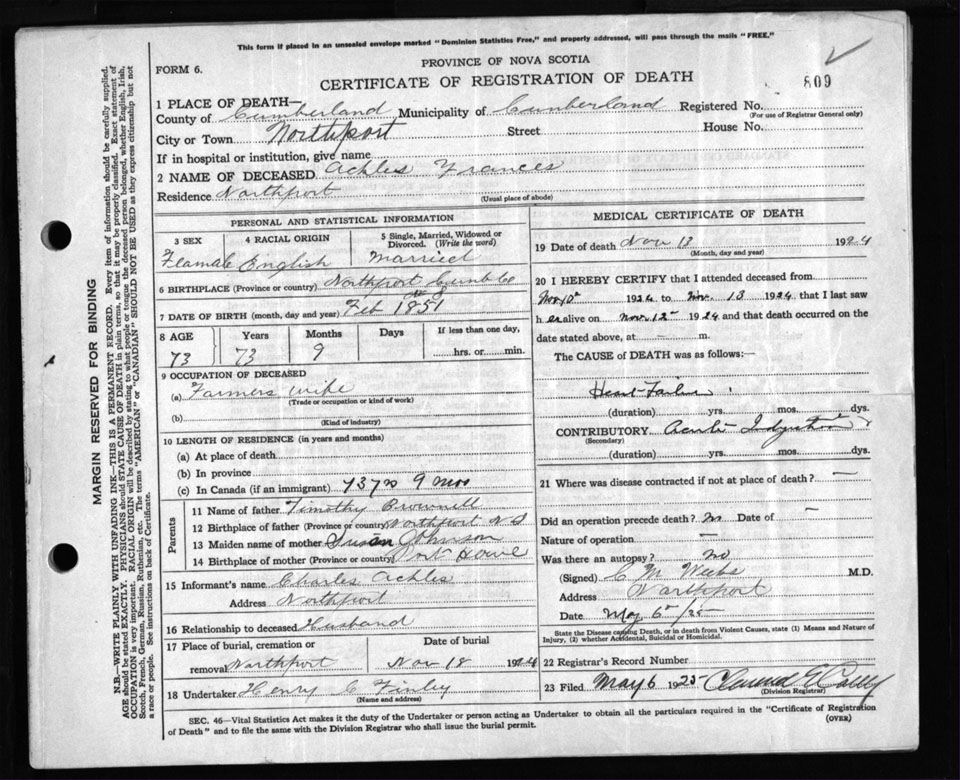 This form if placed in an unsealed envelope marked "Dominion Statistics Free," and properly addressed, will pass through the mails "FREE."
FORM 6.
PROVINCE OF NOVA SCOTIA
CERTIFICATE OF REGISTRATION OF DEATH
809
1 PLACE OF DEATH—
County of Cumberland Municipality of Cumberland Registered No.
(For use of Registrar General only)
City or Town Northport Street House No.
If in hospital or institution, give name
2 NAME OF DECEASED Ackles Frances
Residence Northport
(Usual place of abode)
PERSONAL AND STATISTICAL INFORMATION
3 SEX 4 RACIAL ORIGIN 5 Single, Married, Widowed or Divorced. (Write the word)
Flamale English Married
6 BIRTHPLACE (Province or country) Northport Cumb Co
N S
7 DATE OF BIRTH (month, day and year) Feb 1851
8 AGE Years Months Days If less than one day,
73 73 9 hrs. or min.
9 OCCUPATION OF DECEASED
(a) Farmers wife
(Trade or occupation or kind of work)
(b)
(Kind of industry)
10 LENGTH OF RESIDENCE (in years and months)
(a) At place of death
(b) In province
(c) In Canada (if an immigrant) 73 yrs 9 mos
Parents
11 Name of father Timothy Brownell
12 Birthplace of father (Province or country) Northport N S
13 Maiden name of mother Susan Johnson
14 Birthplace of mother (Province or country) Port Howe
15 Informant's name Charles Ackles
Address Northport
16 Relationship to deceased Husband
17 Place of burial, cremation or removal Northport
Date of burial
Nov 18 1924
18 Undertaker Henry C Finley
(Name and address)
MEDICAL CERTIFICATE OF DEATH
19 Date of death Nov 13 1924
(Month, day and year)
20 I HEREBY CERTIFY that I attended deceased from
Nov 10th 1924 to Nov. 13 1924 that I last saw
her alive on Nov. 12th 1924 and that death occurred on the
date stated above, at — m.
The CAUSE of DEATH was as follows:—
Heart Failure
(duration) yrs. mos. dys.
CONTRIBUTORY Acute Indigestion
(Secondary)
(duration) yrs. mos. dys.
21 Where was disease contracted if not at place of death? —
Did an operation precede death? No Date of —
Nature of operation —
Was there an autopsy? No
(Signed) C M M.D.
Address Northport
Date May 6th/25
State the Disease causing Death, or in death from Violent Causes, state (1) Means and Nature of
Injury, (2) whether Accidental, Suicidal or Homicidal.
22 Registrar's Record Number
23 Filed May 6 1925
(Division Registrar)
SEC. 46—Vital Statistics Act makes it the duty of the Undertaker or person acting as Undertaker to obtain all the particulars required in the "Certificate of Registration
of Death" and to file the same with the Division Registrar who shall issue the burial permit.
(OVER)
MARGIN RESERVED FOR BINDING
N.B.—WRITE PLAINLY WITH UNFADING INK—THIS IS A PERMANENT RECORD. Every item of information should be carefully supplied.
AGE should be stated EXACTLY. PHYSICIANS should STATE CAUSE OF DEATH in plain terms, so that it may be properly classified. Exact statement of
OCCUPATION is very important. RACIAL ORIGIN will be described by stating to what people or tongue the deceased person belonged, whether English, Irish,
Scotch, French, German, Russian, Ruthenian, etc. The terms "AMERICAN" or "CANADIAN" SHOULD NOT BE USED as they express citizenship but not
a race or people. See instructions on back of Certificate.